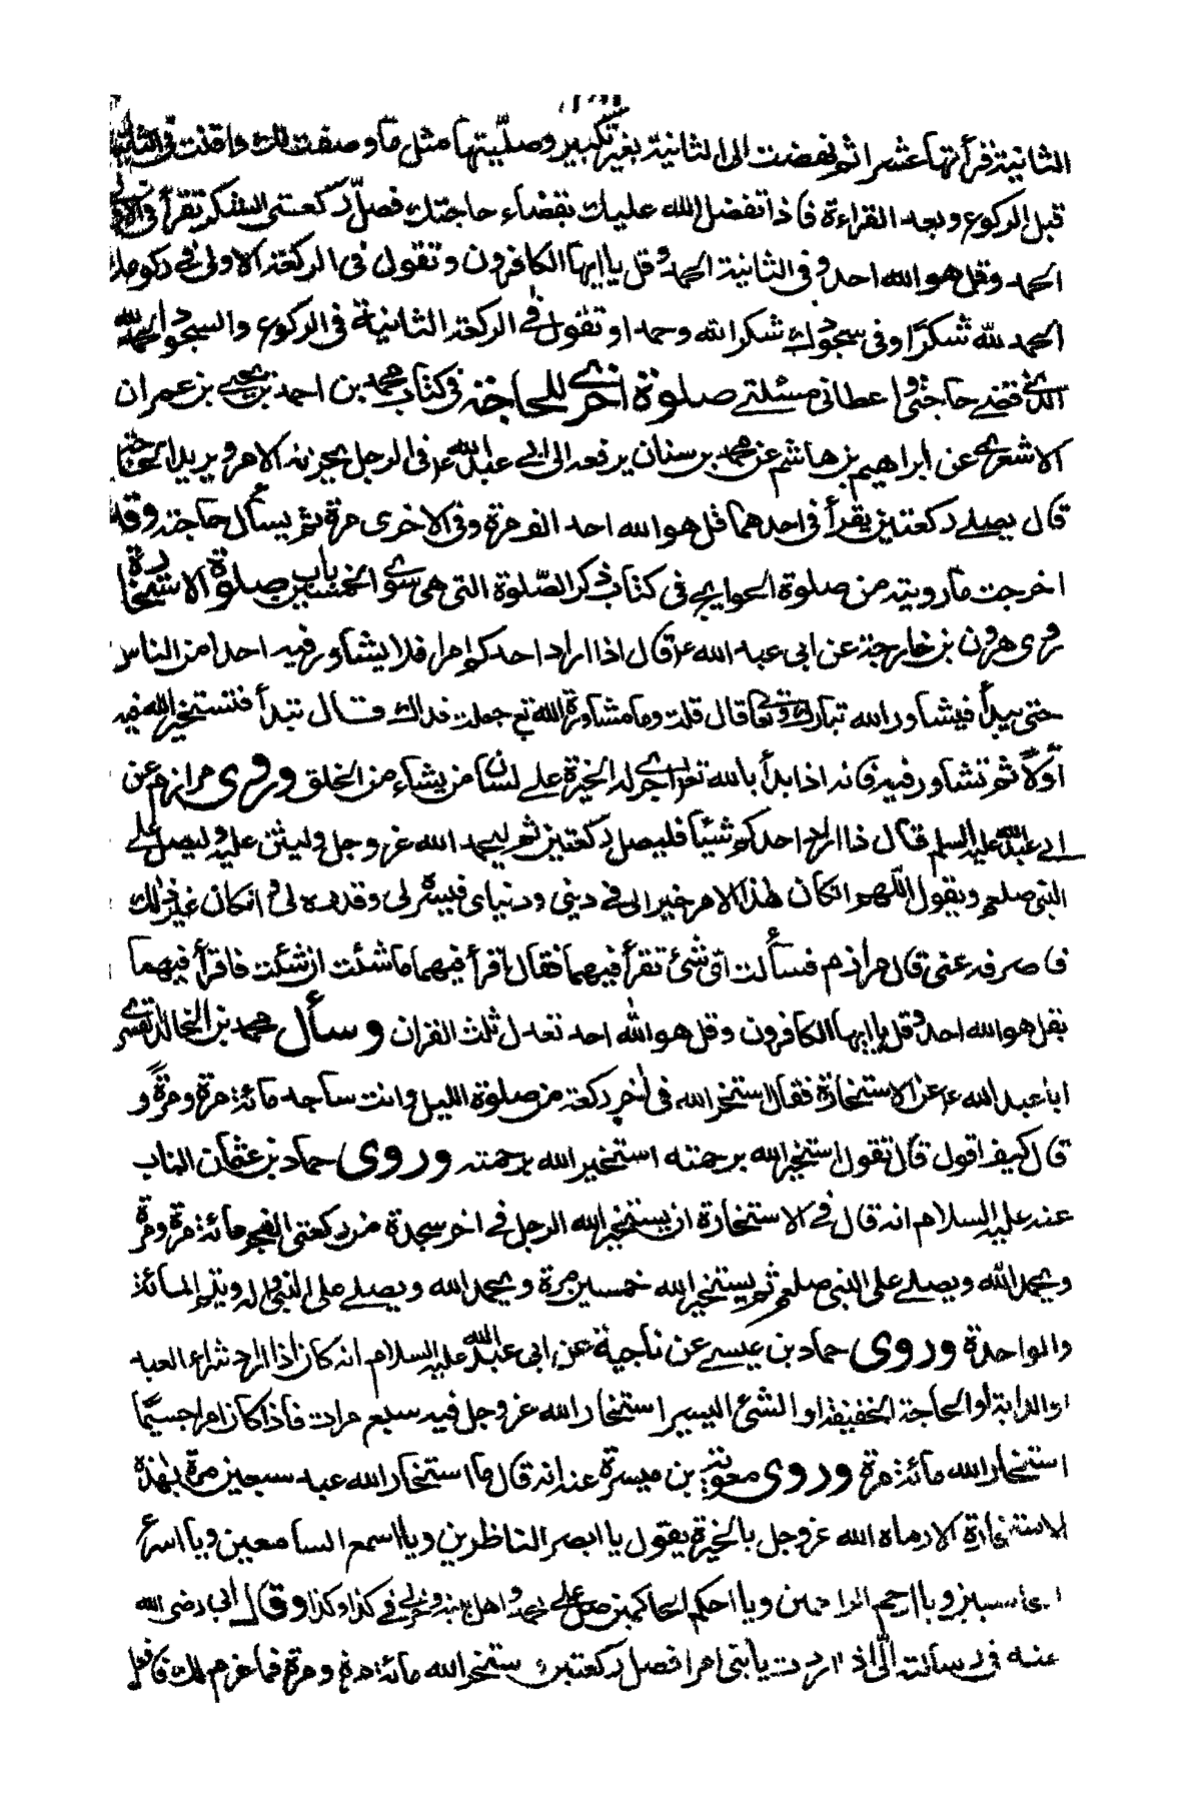 الثانية فقرأتها عشرا ثم نهضت الى الثانية بغير تكبير وصليتها مثل ما وصفت لك واقنت في الثانية
قبل الركوع وبعد القراءة فاذا تفضل الله عليك بقضاء حاجتك فصل ركعتي الشكر تقرأ في الاولى
الحمد وقل هو الله احد وفي الثانية الحمد وقل يا ايها الكافرون وتقول في الركعة الاولى في ركوعك
الحمد لله شكرا وفي سجودك شكرا لله وحمدا وتقول في الركعة الثانية في الركوع والسجود الحمد لله
الذي قضى حاجتي واعطاني مسئلتي صلوة اخرى للحاجة في كتاب محمد بن احمد بن يحيى بن عمران
الاشعري عن ابراهيم بن هاشم عن محمد بن سنان يرفعه الى ابي عبد الله ع في الرجل يحزنه الامر ويريد الحاجة
قال يصلي ركعتين يقرأ في احدهما قل هو الله احد الف مرة وفي الاخرى مرة ثم يسأل حاجته وقد
اخرجت ما رويته من صلوة الحوايج في كتاب ذكر الصلوة التي هي سوى الخمسين باب صلوة الاستخارة
روى هرون بن خارجة عن ابي عبد الله ع قال اذا اراد احدكم امرا فلا يشاور فيه احدا من الناس
حتى يبدأ فيشاور الله تبارك وتعا قال قلت وما مشاورة الله تع جعلت فداك قال تبدأ فتستخير الله فيه
اولا ثم تشاور فيه فانه اذا بدأ بالله تعا اجرى له الخيرة على لسان من يشاء من الخلق وروى مرازم عن
ابي عبد الله عليه السلم قال اذا اراد احدكم شيئا فليصل ركعتين ثم ليحمد الله عز وجل وليثن عليه وليصل على
النبي صلعم ويقول اللهم ان كان هذا الامر خيرا لي في ديني ودنياي فيسره لي وقدره لي وان كان غير ذلك
فاصرفه عني قال مرازم فسألت اي شئ تقرأ فيهما فقال اقرأ فيهما ما شئت ان شئت فاقرأ فيهما
بقل هو الله احد وقل يا ايها الكافرون وقل هو الله احد تعدل ثلث القران وسأل محمد بن الخالد القسري
ابا عبد الله ع عن الاستخارة فقال استخر الله في اخر ركعة من صلوة الليل وانت ساجد مائة مرة ومرة و
قال كيف اقول قال تقول استخير الله برحمته استخير الله برحمته وروى حماد بن عثمان الناب
عنه عليه السلام انه قال في الاستخارة ان يستخير الله الرجل في اخر سجدة من ركعتي الفجر مائة مرة ومرة
ويحمد الله ويصلي على النبي صلعم ثم يستخير الله خمسين مرة ويحمد الله ويصلي على النبي واله ويتم المائة
والواحدة وروى حماد بن عيسى عن ناجية عن ابي عبد الله عليه السلام انه كان اذا اراد شراء العبد
او الدابة او الحاجة الخفيفة او الشئ اليسير استخار الله عز وجل فيه سبع مرات فاذا كان امرا جسيما
استخار الله مائة مرة وروى معوية بن ميسرة عنه انه قال ما استخار الله عبد سبعين مرة بهذه
الاستخارة الا رماه الله عز وجل بالخيرة يقول يا ابصر الناظرين ويا اسمع السامعين ويا اسرع
الحاسبين ويا ارحم الراحمين ويا احكم الحاكمين صل على محمد واهل بيته وخر لي في كذا وكذا وقال ابي رضي الله
عنه في رسالته الي اذا اردت يا بني امرا فصل ركعتين واستخر الله مائة مرة ومرة فما عزم لك فافعل